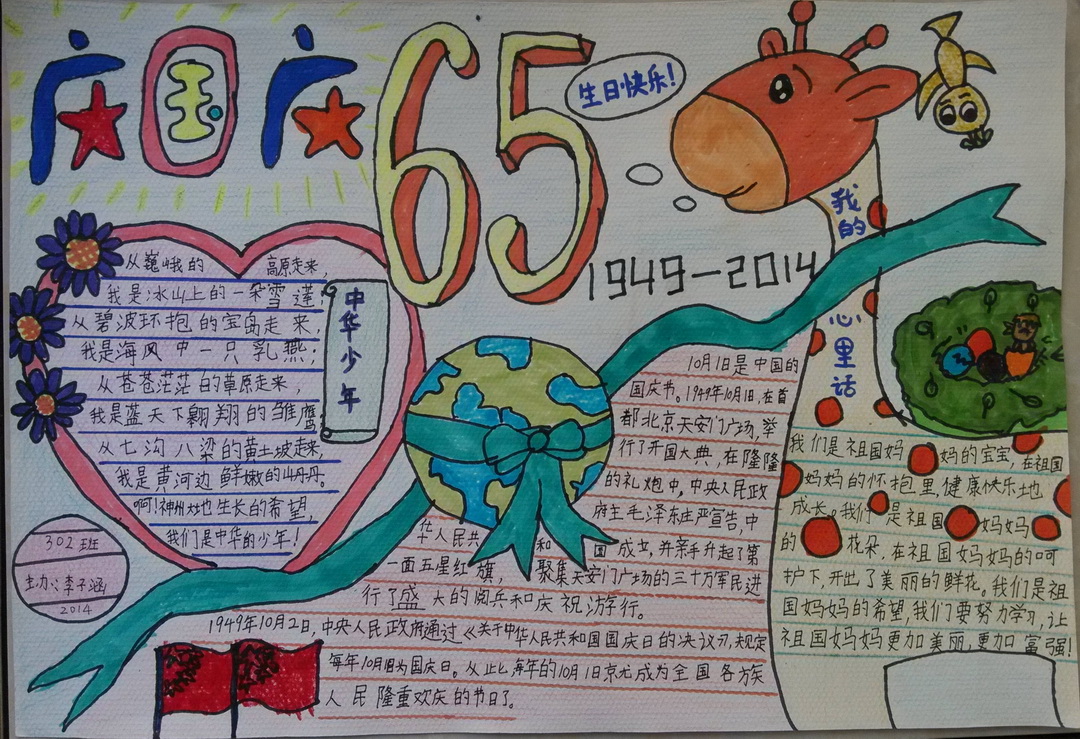 庆国庆
65
生日快乐!
1949—2014
从巍峨的高原走来,
我是冰山上的一朵雪莲;
从碧波环抱的宝岛走来,
我是海风中一只乳燕;
从苍苍茫茫的草原走来,
我是蓝天下翱翔的雏鹰
从七沟八梁的黄土坡走来,
我是黄河边鲜嫩的山丹丹。
啊!神州大地生长的希望,
我们是中华的少年!
中华少年
302班
主办:李子涵
2014
10月1日是中国的
国庆节。1949年10月1日,在首
都北京天安门广场,举
行了开国大典,在隆隆
的礼炮中,中央人民政
府主毛泽东庄严宣告,中
华人民共和国成立,并亲手升起了第
一面五星红旗,聚集天安门广场的三十万军民进
行了盛大的阅兵和庆祝游行。
1949年10月2日,中央人民政府通过《关于中华人民共和国国庆日的决议》,规定
每年10月1日为国庆日。从此每年的10月1日就成为全国各族
人民隆重欢庆的节日了。
我的
心里话
我们是祖国妈妈的宝宝,在祖国
妈妈的怀抱里健康快乐地
成长。我们是祖国妈妈
的花朵,在祖国妈妈的呵
护下,开出了美丽的鲜花。我们是祖
国妈妈的希望,我们要努力学习,让
祖国妈妈更加美丽,更加富强!